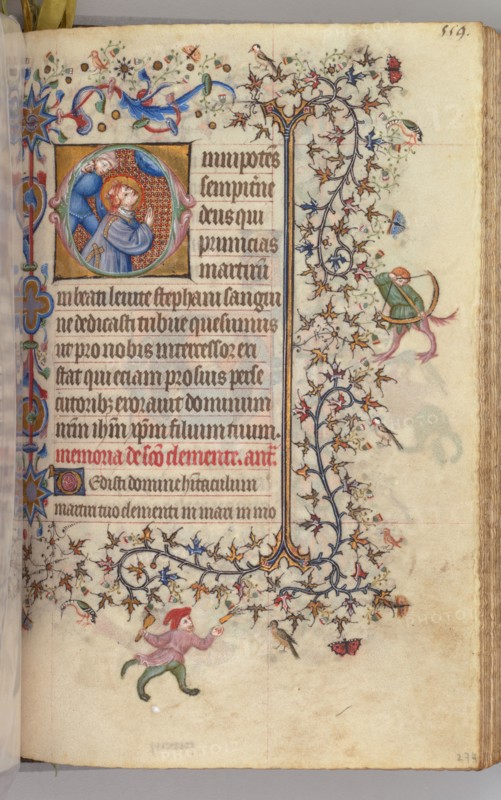 559.
mnipotēs
sempit̄ne
deus qui
primicias
martirū
in beati leuite stephani sangui
ne dedicasti tribue quesumus
ut pro nobis intercessor exi
stat qui eciam pro suis perse
cutoribꝫ exorauit dominum
nr̄m ih̄m xp̄m filium tuum.
memoria de sc̄o clemente. ant̄.
Dedisti domine h̄itaculum
martiri tuo clementi in mari in mo
274